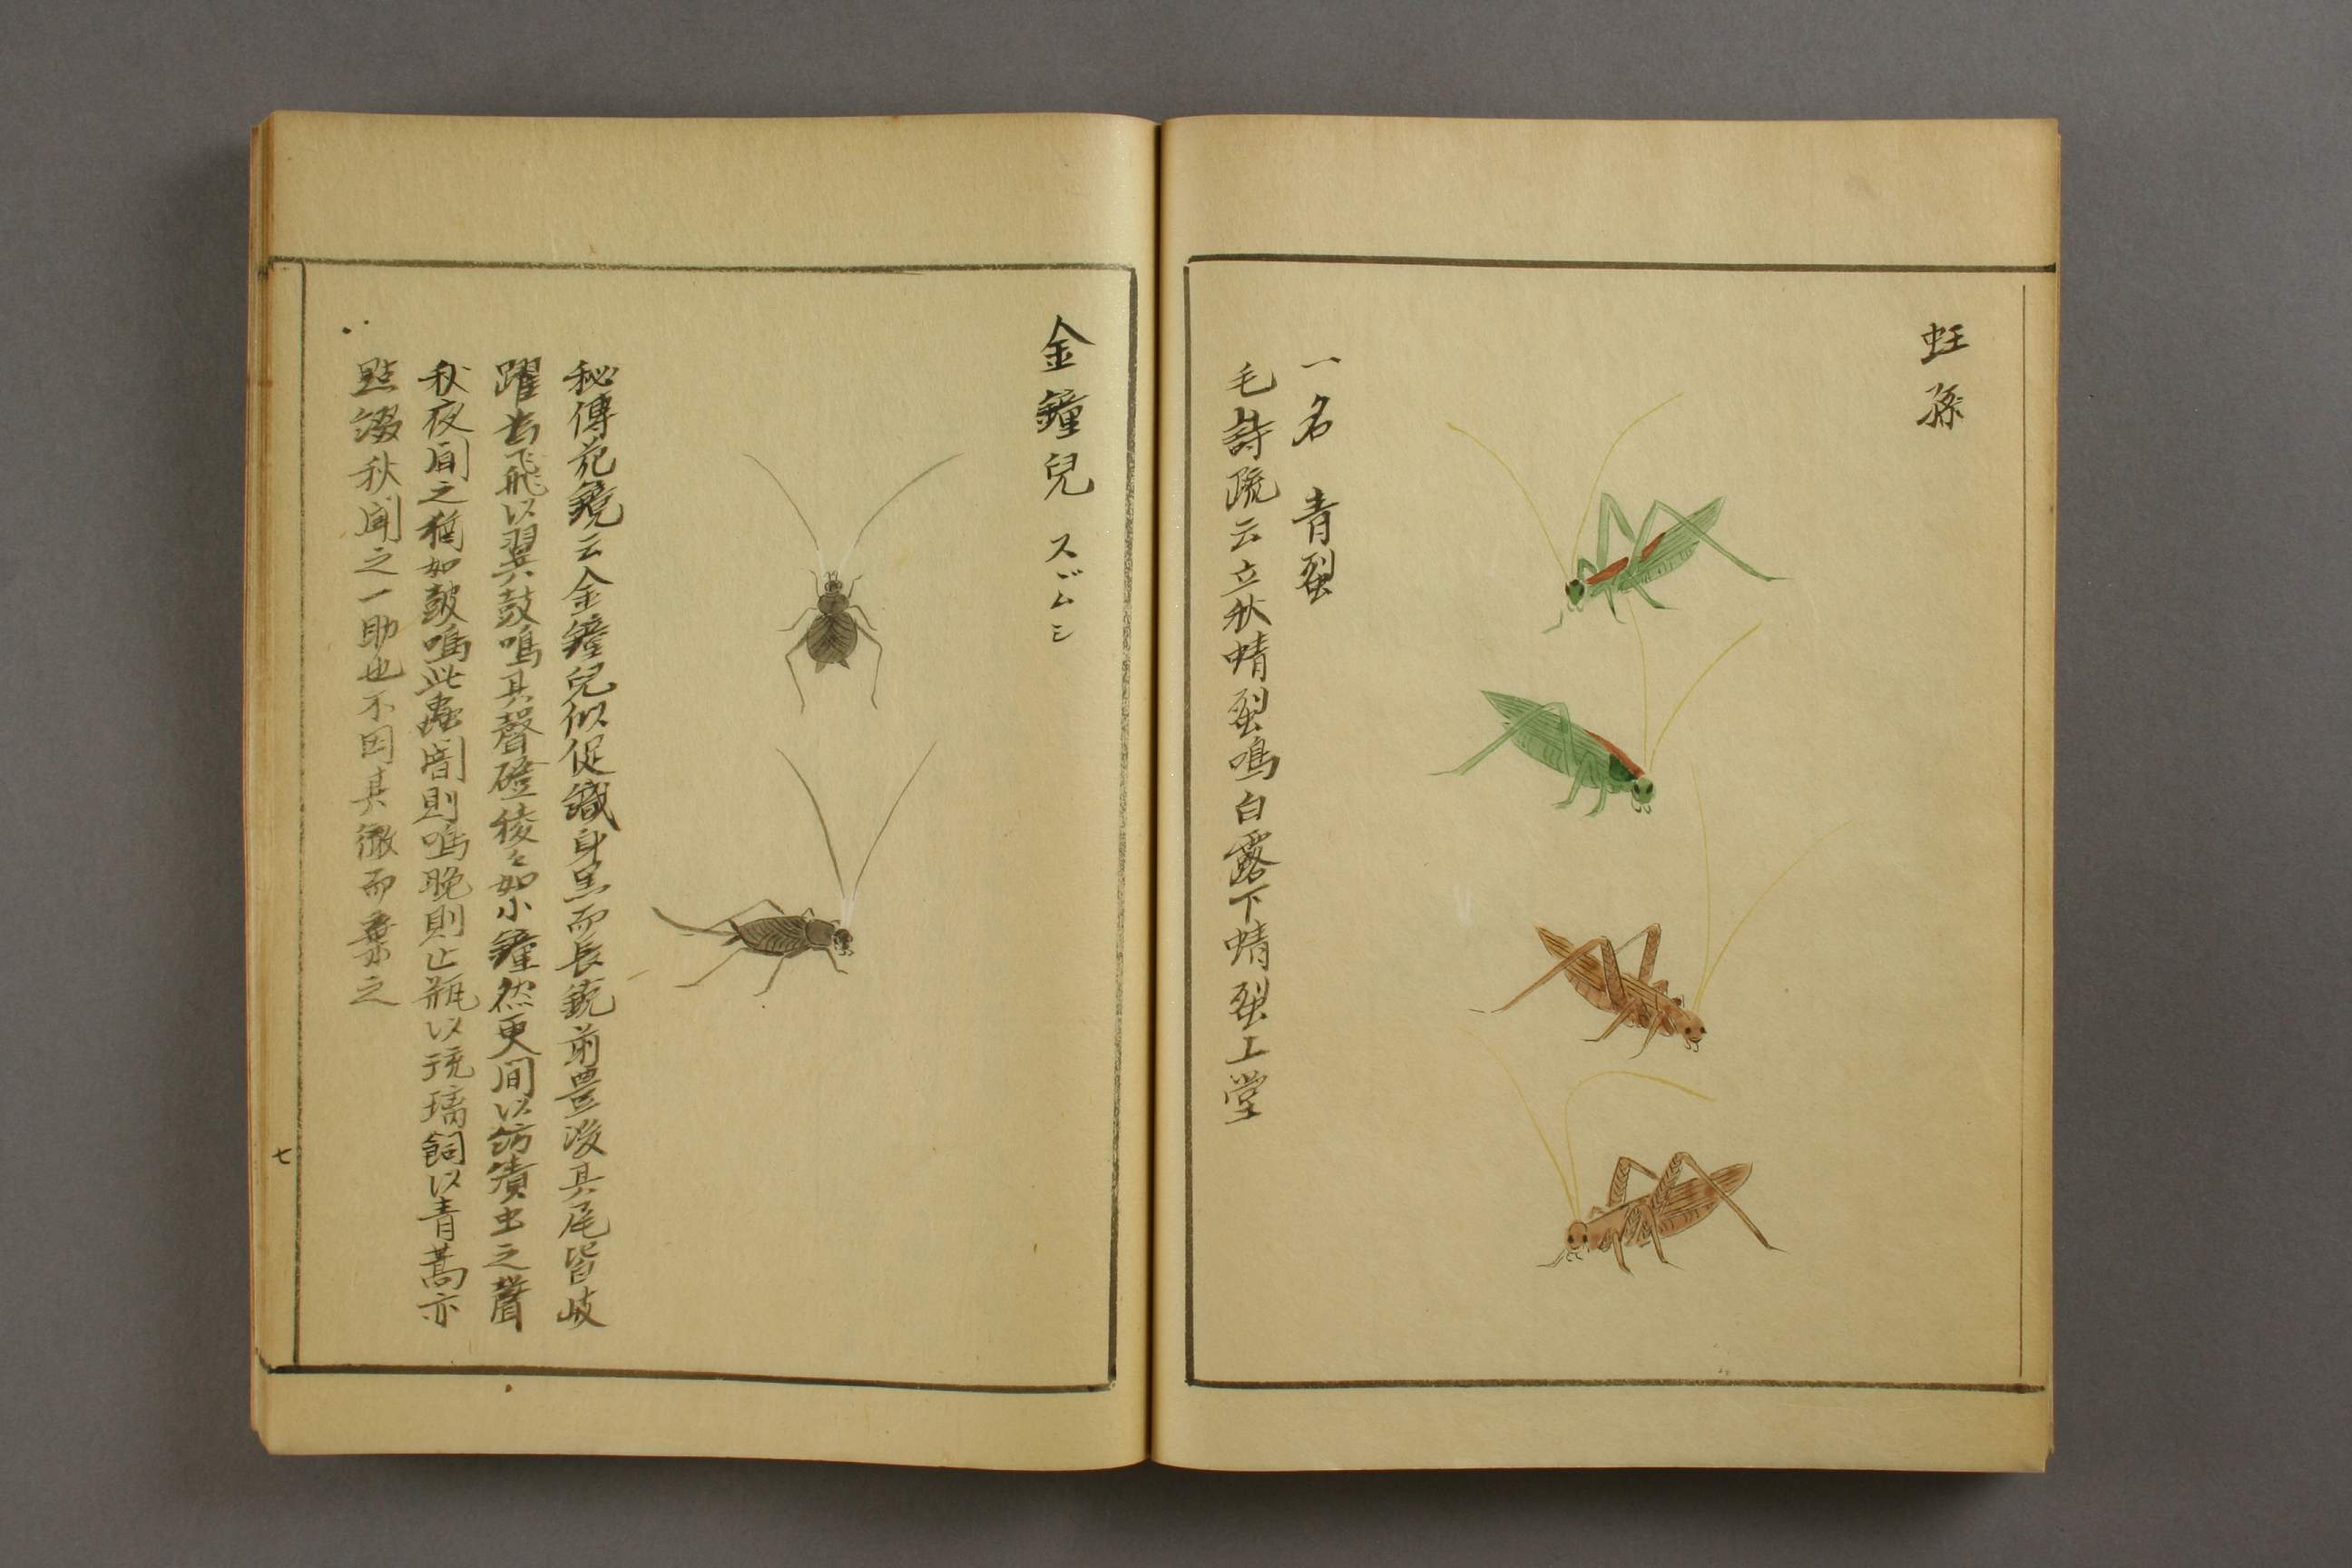 蚟孫
一名 青𧊿
毛詩疏云立秋蜻𧊿鳴白露下蜻𧊿上堂
金鐘兒 スヾムシ
秘傳花鏡云金鐘兒似促織身黒而長銳前豊後其尾皆岐
躍去飛以翼鼓鳴其聲磴稜々如小鐘然更间以紡績虫之聲
秋夜聞之猶如鼓鳴此蟲闇則鳴晩則止瓶以琉璃飼以青蒿亦
點綴秋聞之一助也不因其微而棄之
七